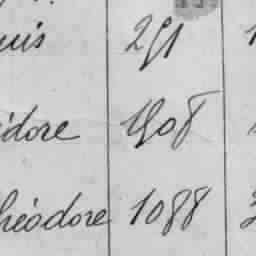 uis 251
idore 1508
héodore 1088